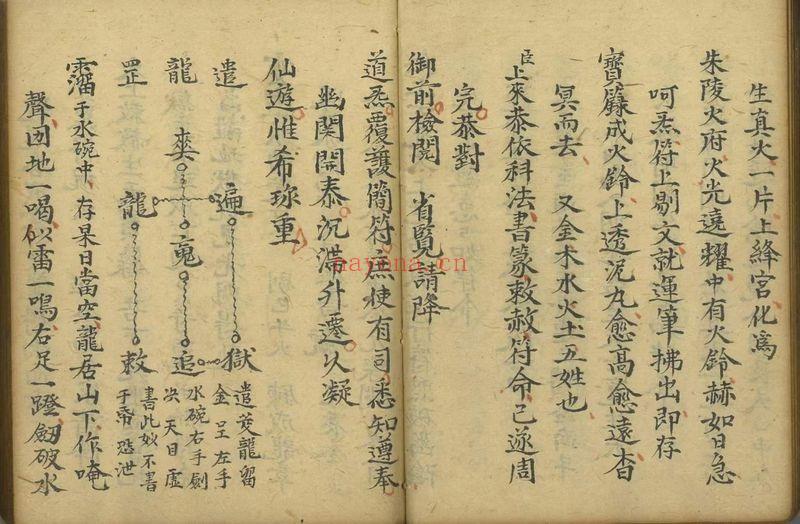 生真火一片上絳宮化爲
朱陵火府火光遶耀中有火鈴赫如日急
呵炁符上剔文就運筆拂出即存
寶籙成火鈴上透泥丸愈高愈遠杳
冥而去 又金木水火土五姓也
臣上來恭依科法書篆敕赦符命已遂周
完恭對
御前檢閱 省覧請降
道炁覆護簡符庶使有司悉知遵奉
幽関開泰沉滞升遷以凝
仙遊惟希珎重
遣 遍 獄
龍 奭 㲋 追
罡 龍 敕
遣茭龍留
金 呈左手
水碗右手劍
决天目虚
書此如不書
于帋恐泄
霤于水碗中 存杲日當空龍居山下作唵
聲団地一喝似雷一鳴右足一蹬劔破水
nayona.cn